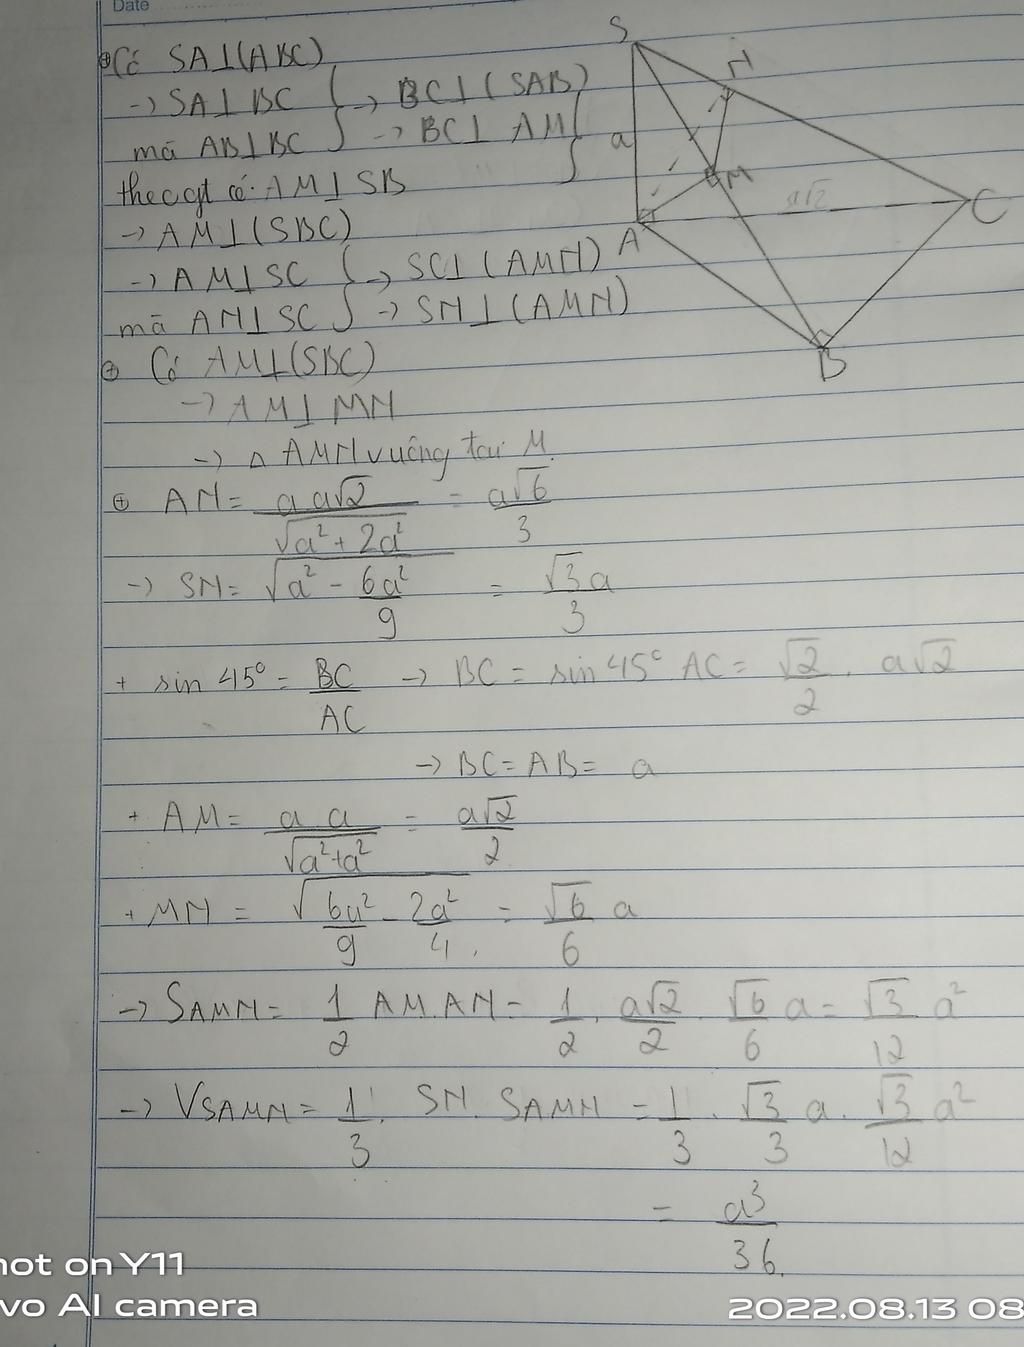 Date
⊕ Có SA⊥(ABC)
→ SA⊥BC } → BC⊥(SAB)
mà AB⊥BC } → BC⊥ AM }
theo gt có: AM⊥SB
→ AM⊥(SBC)
→ AM⊥SC } → SC⊥(AMN)
mà AN⊥SC } → SN⊥(AMN)
⊕ Có AM⊥(SBC)
→ AM⊥MN
→ △ AMN vuông tại M.
⊕ AN = a a√2 / √(a²+2a²) = a√6 / 3
→ SN = √(a² - 6a²/9) = √3a / 3
+ sin 45° = BC / AC → BC = sin 45° AC = √2 / 2 . a√2
→ BC = AB = a
+ AM = a a / √(a²+a²) = a√2 / 2
+ MN = √(6a²/9 - 2a²/4) = √6 / 6 a
→ SAMN = 1/2 AM.AN = 1/2 . a√2/2 . √6/6 a = √3/12 a²
→ VSAMN = 1/3 . SN. SAMN = 1/3 . √3/3 a . √3/12 a²
= a³ / 36.
S
N
a
M
a√2
C
A
B
hot on Y11
vo AI camera
2022.08.13 08